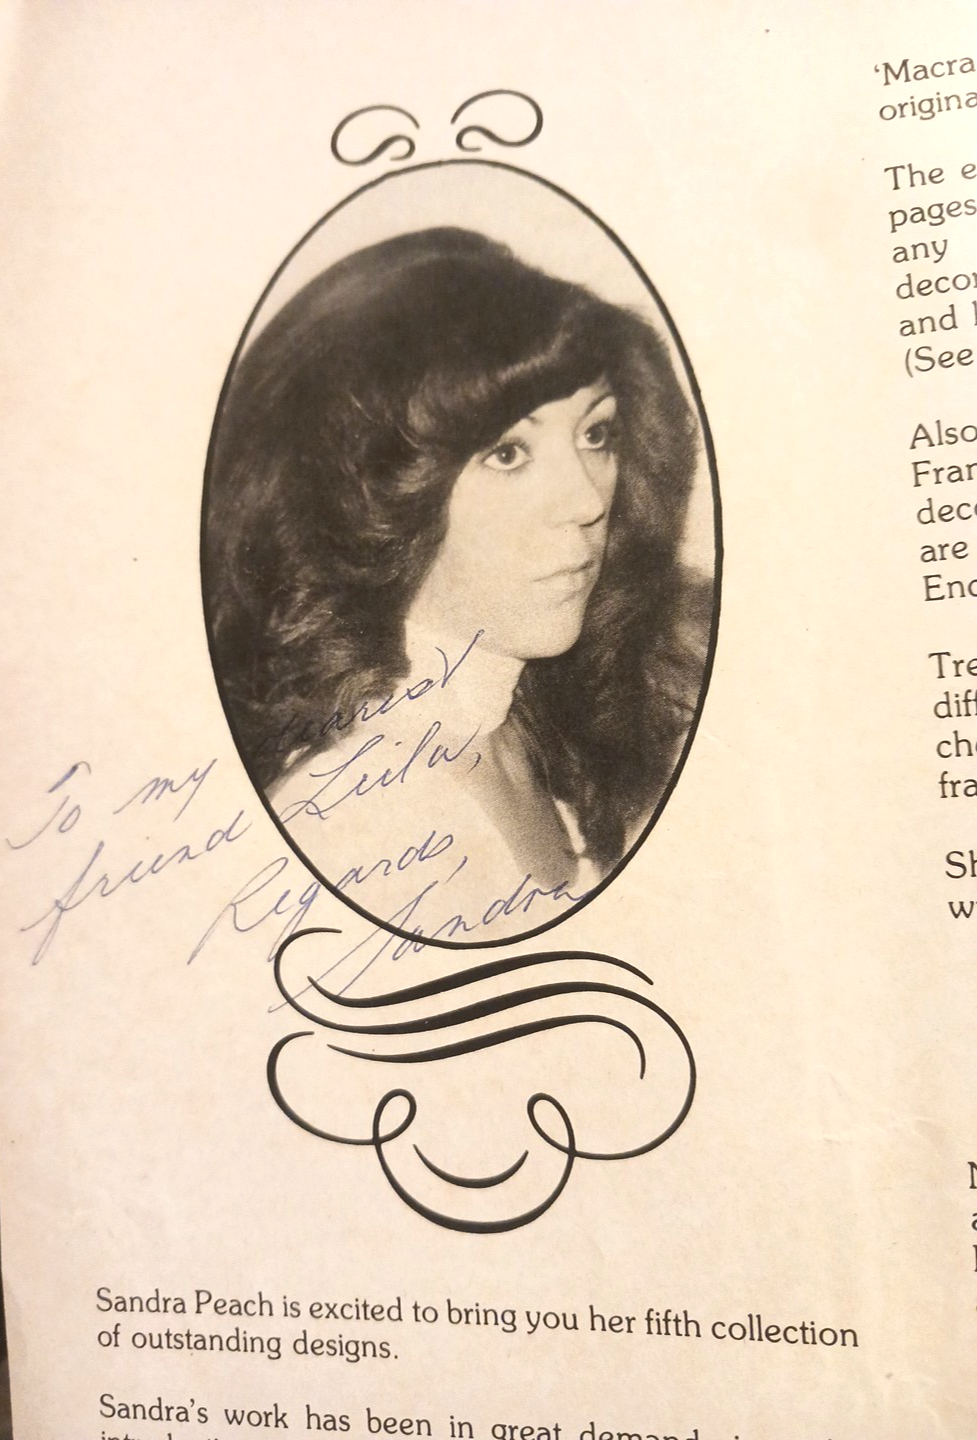 To my dearest
friend Leila,
Regards,
Sandra
Sandra Peach is excited to bring you her fifth collection
of outstanding designs.
Sandra's work has been in great demand
'Macra
origina
The e
pages
any
decor
and
(See
Also
Fran
deco
are
Enc
Tre
diff
che
fra
Sh
wi